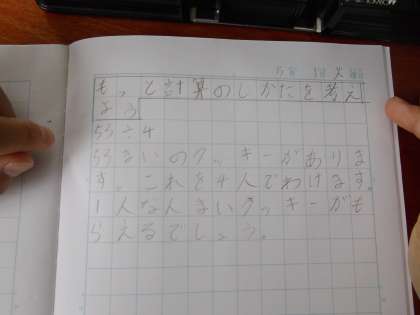 もっと計算のしかたを考え
よう
53÷4
53まいのクッキーがありま
す。これを4人でわけます。
1人なんまいクッキーがも
らえるでしょう。